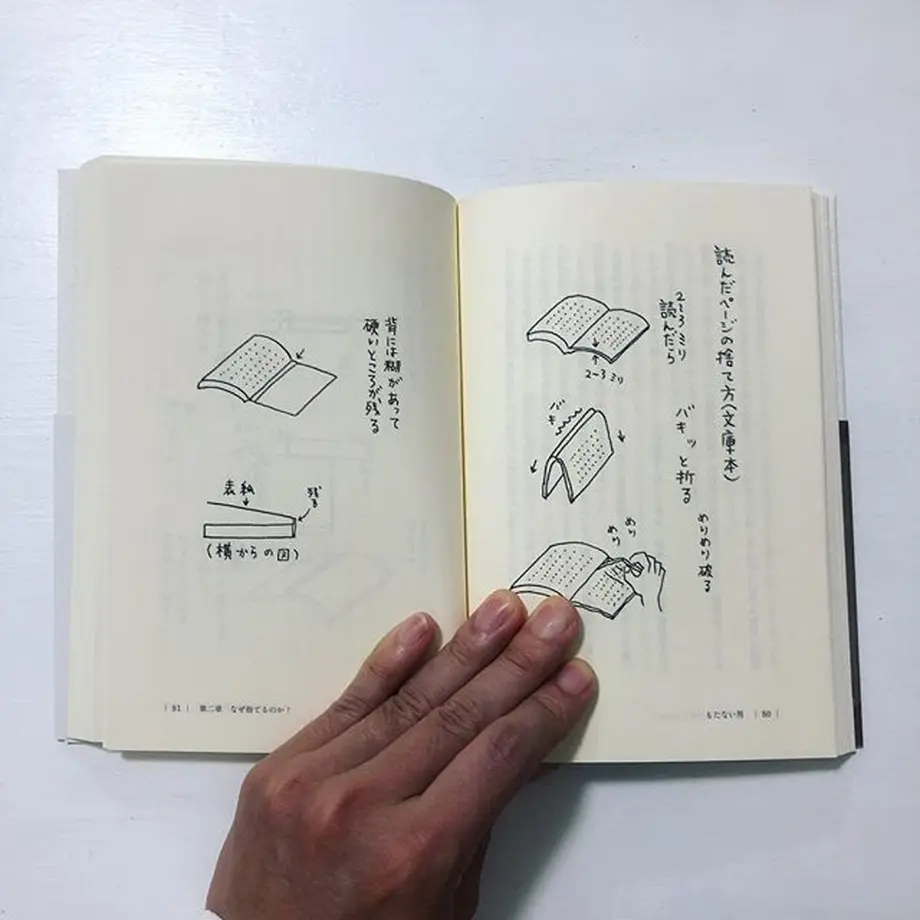 読んだページの捨て方(文庫本)
2〜3ミリ
読んだら
2〜3ミリ
バキッと折る
バキ
めりめり破る
めり
めり
もたない男 | 80 |
背には糊があって
硬いところが残る
表紙
残る
(横からの図)
| 81 | 第二章 なぜ捨てるのか?